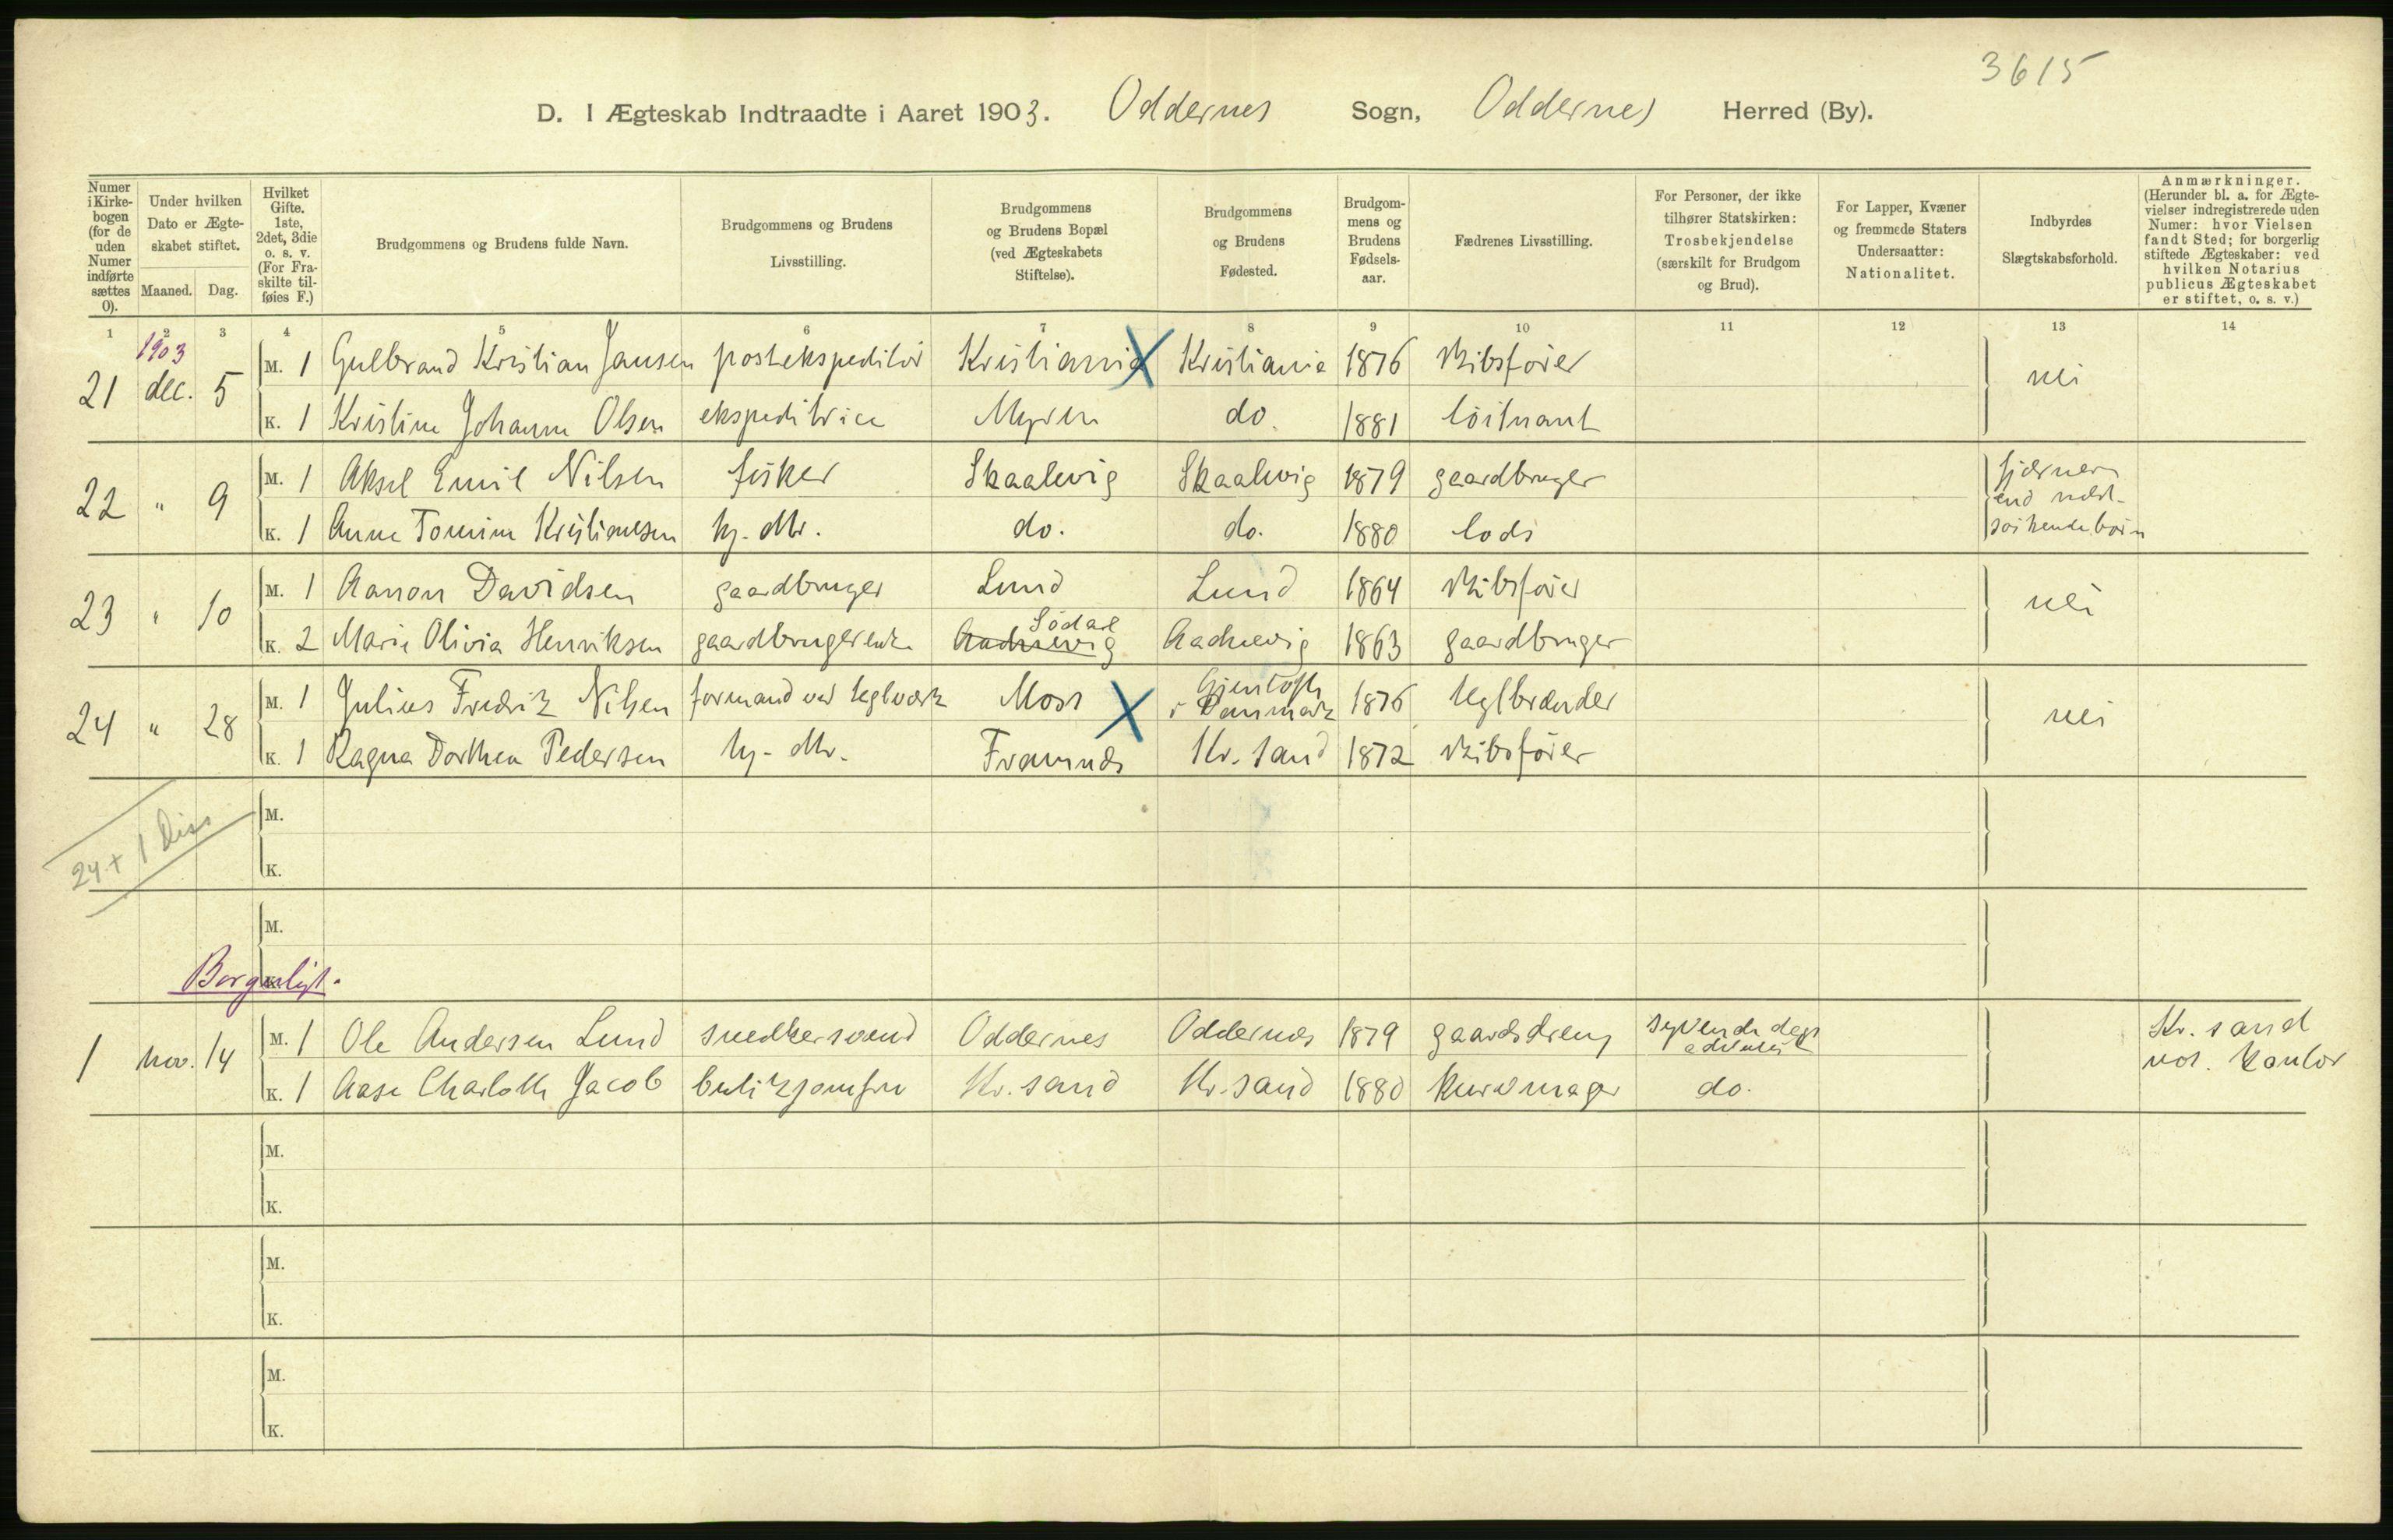 3615
D. I Ægteskab Indtraadte i Aaret 1903. Oddernes Sogn, Oddernes Herred (By).
Numer i Kirkebogen (for de uden Numer indførte sættes 0).
Under hvilken Dato er Ægteskabet stiftet.
Maaned. Dag.
Hvilket Gifte. 1ste, 2det, 3die o. s. v. (For Fraskilte tilføies F.)
Brudgommens og Brudens fulde Navn.
Brudgommens og Brudens Livsstilling.
Brudgommens og Brudens Bopæl (ved Ægteskabets Stiftelse).
Brudgommens og Brudens Fødested.
Brudgommens og Brudens Fødselsaar.
Fædrenes Livsstilling.
For Personer, der ikke tilhører Statskirken: Trosbekjendelse (særskilt for Brudgom og Brud).
For Lapper, Kvæner og fremmede Staters Undersaatter: Nationalitet.
Indbyrdes Slægtskabsforhold.
Anmærkninger. (Herunder bl. a. for Ægtevielser indregistrerede uden Numer: hvor Vielsen fandt Sted; for borgerlig stiftede Ægteskaber: ved hvilken Notarius publicus Ægteskabet er stiftet, o. s. v.)
1 2 3 4 5 6 7 8 9 10 11 12 13 14
1903
21 dec. 5 M. 1 Gulbrand Kristian Jansen postekspeditør Kristiania X Kristiania 1876 skibsfører nei
K. 1 Kristine Johanne Olsen ekspeditrice Myren do. 1881 løitnant
22 " 9 M. 1 Aksel Emil Nilsen fisker Skaalevig Skaalevig 1879 gaardbruger fjærnere end næst-søskendebørn
K. 1 Anne Tomine Kristiansen hj. dtr. do. do. 1880 lods
23 " 10 M. 1 Aanon Davidsen gaardbruger Lund Lund 1864 skibsfører nei
K. 2 Marie Olivia Henriksen gaardbrugerenke Aadnevig Södal Aadnevig 1863 gaardbruger
24 " 28 M. 1 Julius Fredrik Nilsen formand ved teglværk Moss X Gjentofte i Danmark 1876 teglbrænder nei
K. 1 Ragna Dorthea Pedersen hj. dtr. Framnæs Kr.sand 1872 skibsfører
24 + 1 Diss
M.
K.
M.
K.
Borgerligt.
1 nov. 14 M. 1 Ole Andersen Lund snedkersvend Oddernes Oddernes 1879 gaardsdreng syvende dags adventist Kr.sand not. kontor
K. 1 Aase Charlotte Jacob butikjomfru Kr.sand Kr.sand 1880 kurvmager do.
M.
K.
M.
K.
M.
K.